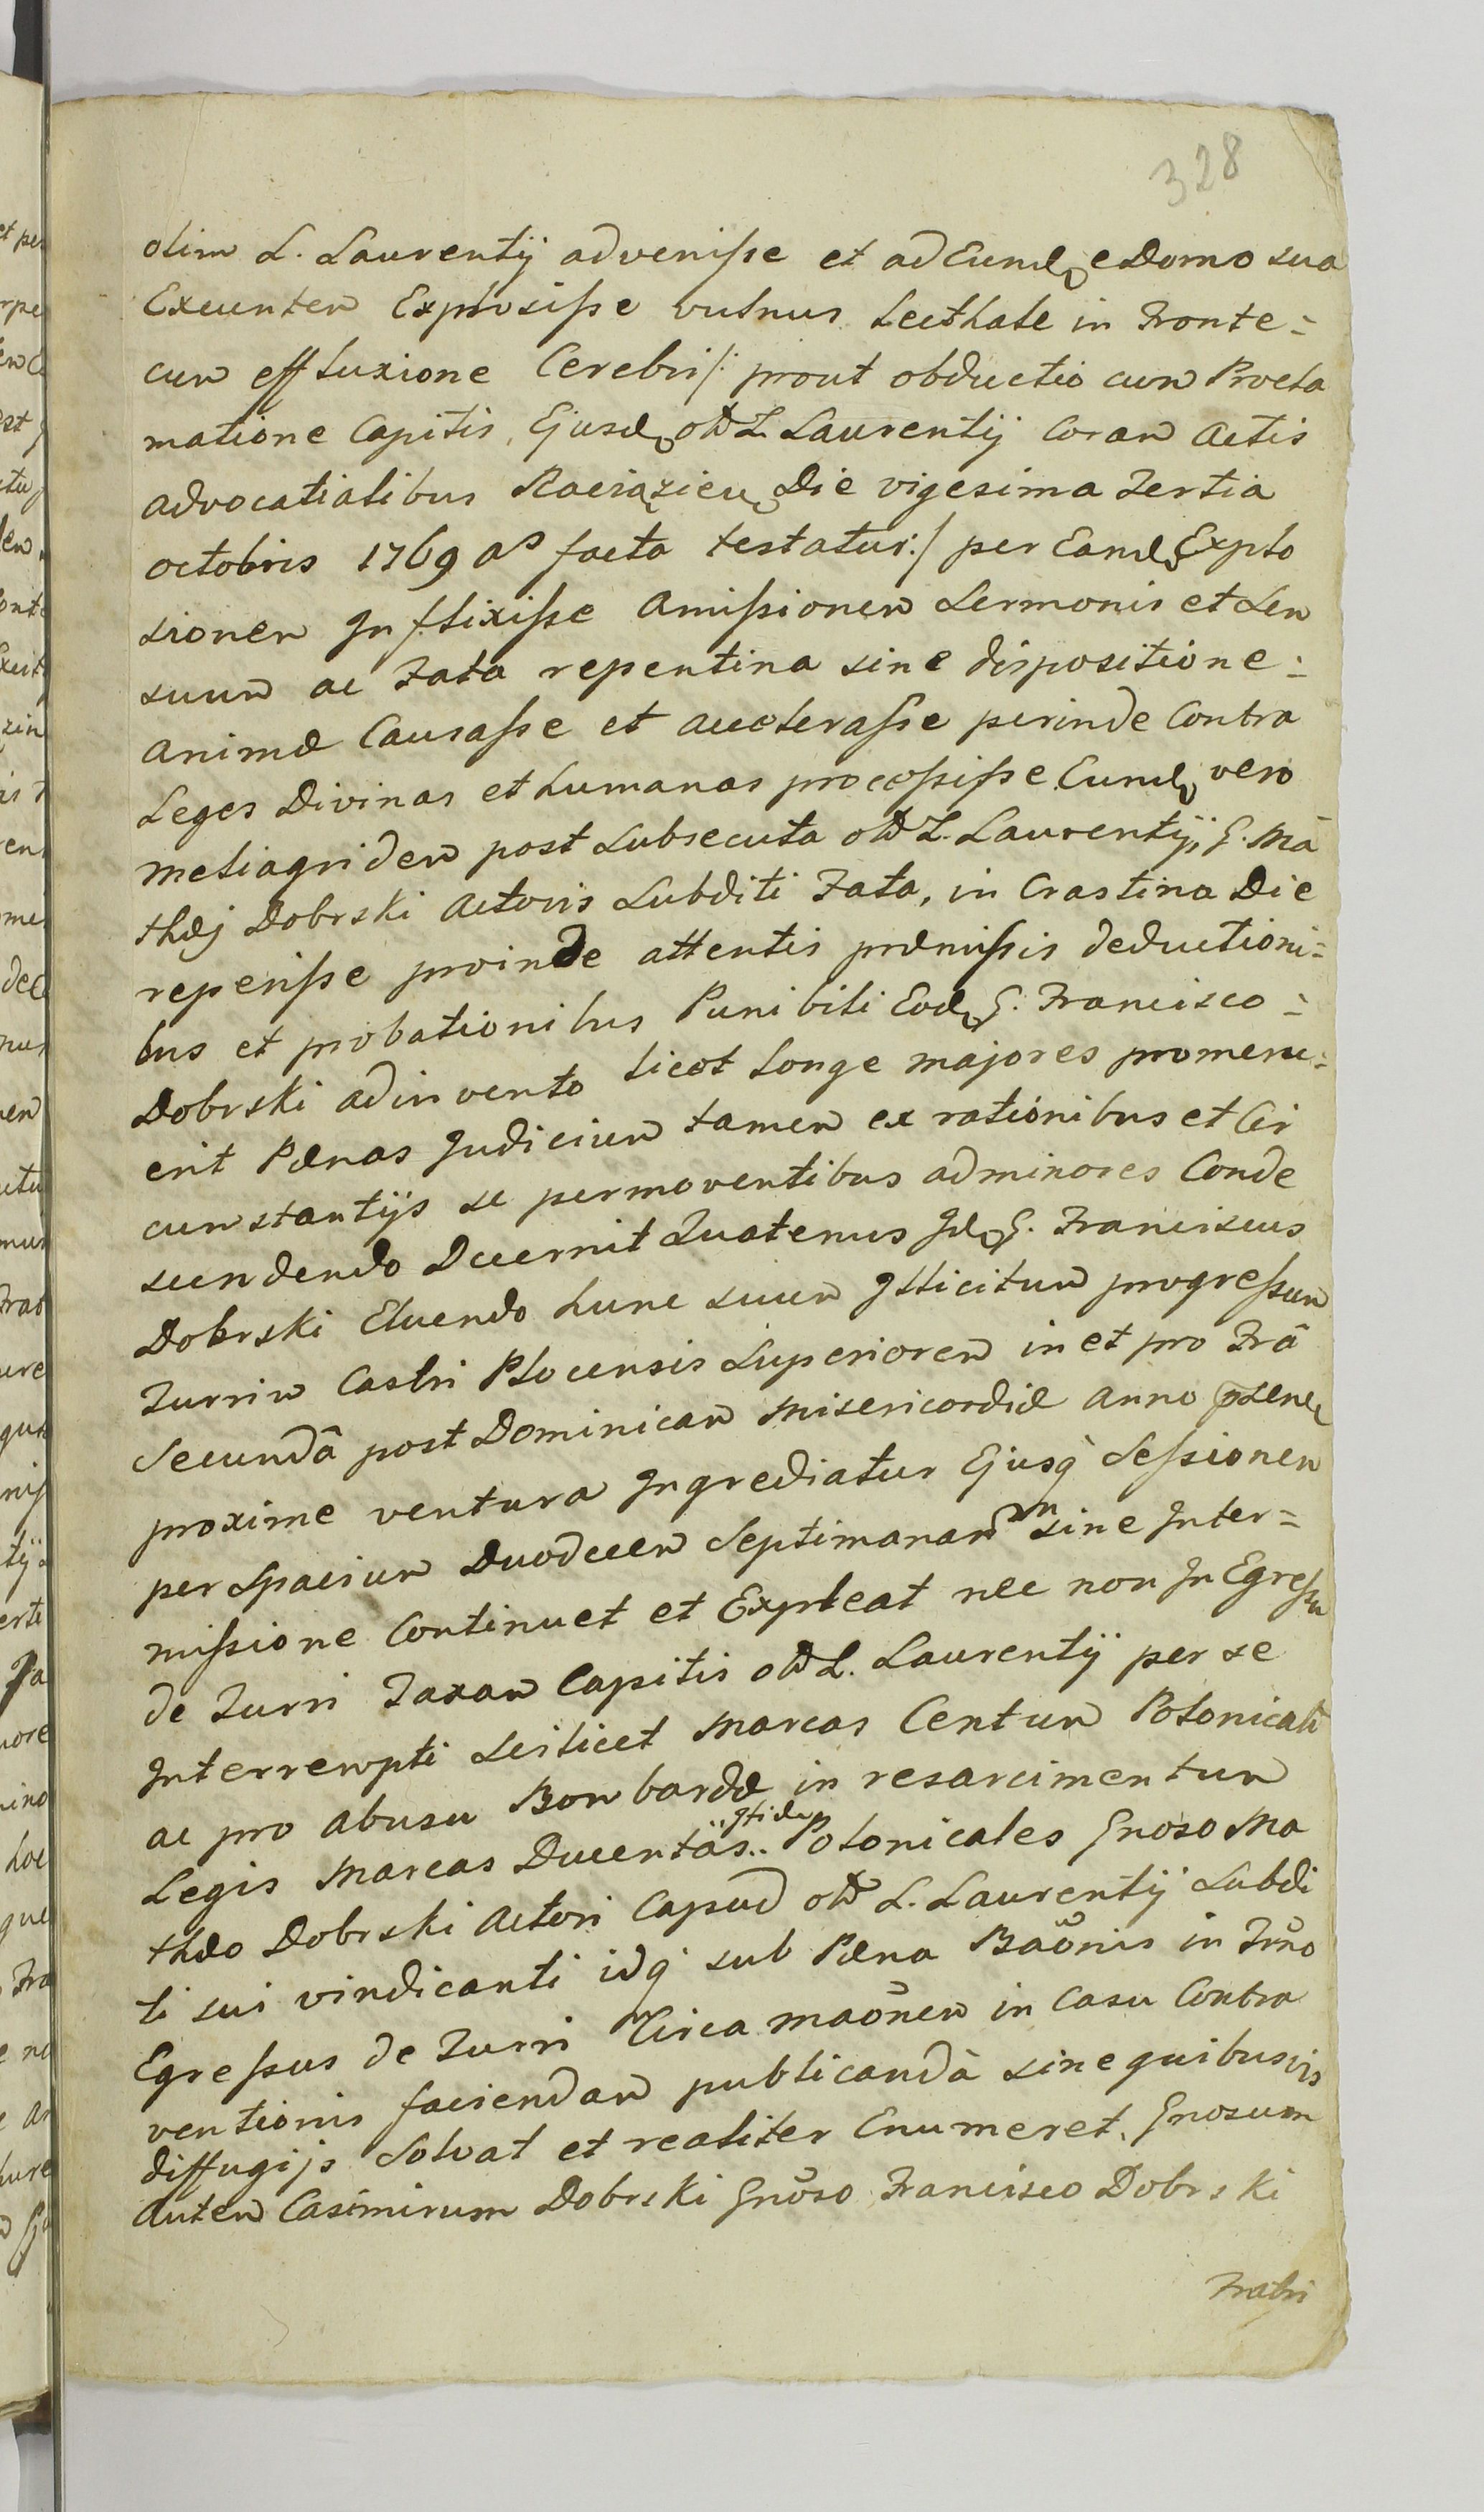 328
olim L. Laurentij advenisse et ad Eund e Domo sua
Exeuntem Explosisse vulnus Leethale in Fronte =
cum effluxione Cerebri /: prout obductio cum Procla
matione Capitis, Ejusd olĩ L. Laurentij Coram Actis
advocatialibus Raciązien Die vigesima Tertia
octobris 1769 as facta testatur :/ per Eand Explo
sionem Inflixisse Amissionem Sermonis et Sen
suum ac Fata repentina sine dispositione =
animæ Causasse et accelerasse perinde Contra
Leges Divinas et humanas processisse Eund vero
meliagridem post Subsecuta olĩ L. Laurentij, G. Ma
thæj Dobrski Actoris Subditi Fata, in Crastina Die
reperisse proinde attentis præmissis deductioni =
bus et probationibus Punibili Eod G. Francisco =
Dobrski adinvento licet longe majores promeru =
erit Pænas Judicium tamen ex rationibus et Cir
cumstantijs se permoventibus ad minores Conde
scendendo Decernit Quatenus Id G. Franciscus
Dobrski Eluendo hunc suum Illicitum progressum
Turrim Castri Plocensis Superiorem in et pro Frã
Secundâ post Dominicam Misericordiæ anno præsene
proxime ventura Ingrediatur Ejusq̀ Sessionem
per Spacium Duodecem Septimanarum sine Inter =
missione Continuet et Expleat nec non In Egressu
de Turri Taxam Capitis olĩ L. Laurentij per se
Interrempti scilicet Marcas Centum Polonicali
ac pro abusu Bombardæ in resarcimentum
Legis Marcas Ducentas.. Polonicales Gnoso Ma
thæo Dobrski Actori Capud olĩ L. Laurentij Subdi
ti sui vindicanti idq̀ sub Pæna Bãonis in Frño
Egressus de Turri Circa mãonem in Casu Contra
ventionis faciendam publicandâ sine quibusvis
diffugijs Solvat et realiter Enumeret. Gnosum
Autem Casimirum Dobrski Gnõso Francisco Dobrski
Fratri